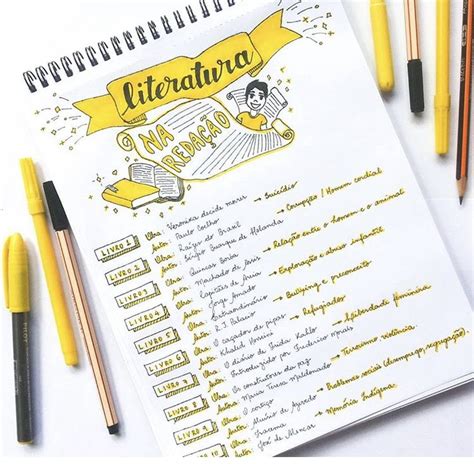 literatura
NA
REDAÇÃO
LIVRO 1
Obra: Veronika decide morrer → Suicídio
Autor: Paulo Coelho
LIVRO 2
Obra: Raízes do Brasil → Corrupção / Homem cordial
Autor: Sérgio Buarque de Holanda
LIVRO 3
Obra: Quincas Borba → Relação entre o homem e o animal
Autor: Machado de Assis
LIVRO 4
Obra: Capitães da Areia → Exploração e abuso infantil
Autor: Jorge Amado
Obra: Extraordinário → Bullying e preconceito
Autor: R.J Palacio
LIVRO 6
Obra: O caçador de pipas → Refugiados
Autor: Khaled Hosseini
LIVRO 7
Obra: O diário de Frida Kahlo →
Autor: Introduzido por Frederico Morais
Obra: Os construtores da paz → Terrorismo
Autor: Maria Tereza Maldonado
Obra: O cortiço → Problemas sociais (desemprego, segregação).
Autor: Aluísio de Azevedo
Obra: Iracema → Memória Indígena.
Autor: José de Alencar